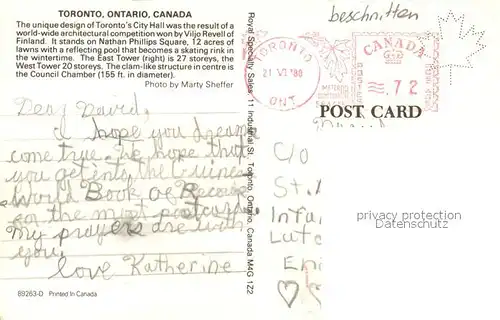 TORONTO, ONTARIO, CANADA
The unique design of Toronto's City Hall was the result of a
world-wide architectural competition won by Viljo Revell of
Finland. It stands on Nathan Phillips Square, 12 acres of
lawns with a reflecting pool that becomes a skating rink in
the wintertime. The East Tower (right) is 27 storeys, the
West Tower 20 storeys. The clam-like structure in centre is
the Council Chamber (155 ft. in diameter).
Photo by Marty Sheffer
Dear David,
I hope you dreams
come true. I hope that
you get into the Guiness
World Book of Records
for the most postcards
My prayers are with
you.
love Katherine
89263-D Printed in Canada
Royal Specialty Sales, 11 Industrial St. Toronto, Ontario, Canada M4G 1Z2
beschnitten
TORONTO
21 VI '90
ONT
CANADA
POSTES
.72
POST CARD
c/o
St.
Infa
Lutc
En
protected by copyright
privacy protection